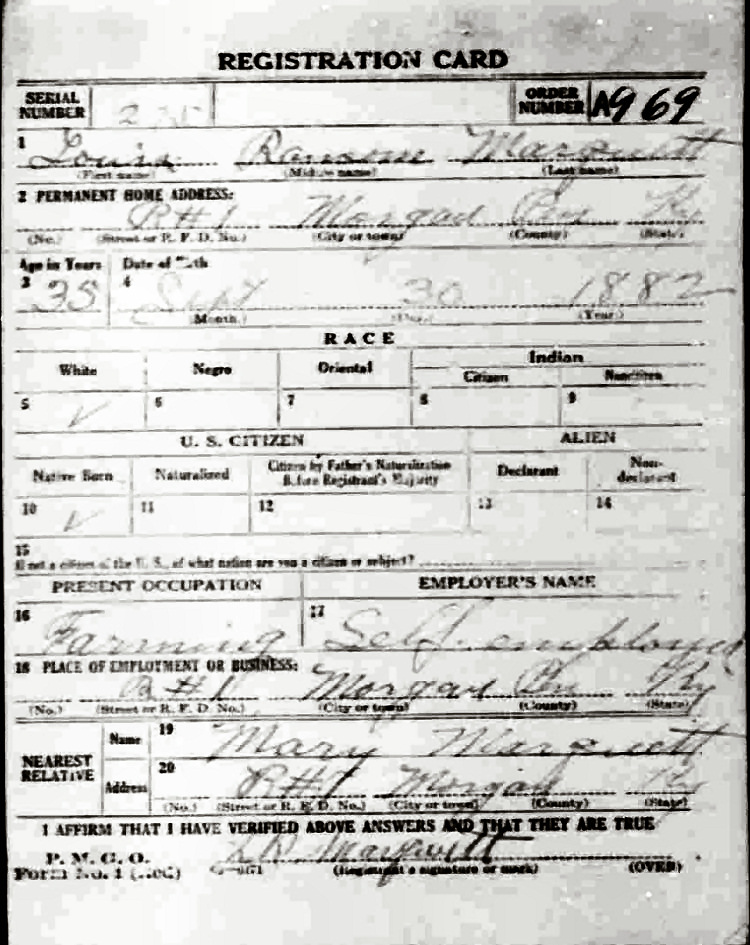 REGISTRATION CARD
SERIAL NUMBER ORDER NUMBER A969
1 Louis Ransome Marquett
(First name) (Middle name) (Last name)
2 PERMANENT HOME ADDRESS:
R#1 Morgan Pen Ky
(No.) (Street or R. F. D. No.) (City or town) (County) (State)
Age in Years Date of Birth
3 35 4 Sept 30 1882
(Month.) (Day.) (Year.)
RACE
White Negro Oriental Indian
Citizen Noncitizen
5 ✓ 6 7 8 9
U. S. CITIZEN ALIEN
Native Born Naturalized Citizen by Father's Naturalization Before Registrant's Majority Declarant Non-declarant
10 ✓ 11 12 13 14
15
If not a citizen of the U. S., of what nation are you a citizen or subject?
PRESENT OCCUPATION EMPLOYER'S NAME
16 Farming 17 Self. employed
18 PLACE OF EMPLOYMENT OR BUSINESS:
R#1 Morgan Pen Ky
(No.) (Street or R. F. D. No.) (City or town) (County) (State)
NEAREST RELATIVE Name 19 Mary Marquett
Address 20 R#1 Morgan Ky
(No.) (Street or R. F. D. No.) (City or town) (County) (State)
I AFFIRM THAT I HAVE VERIFIED ABOVE ANSWERS AND THAT THEY ARE TRUE
P. M. G. O.
Form No. 1 (Red) L R Marquett
(Registrant's signature or mark) (OVER)